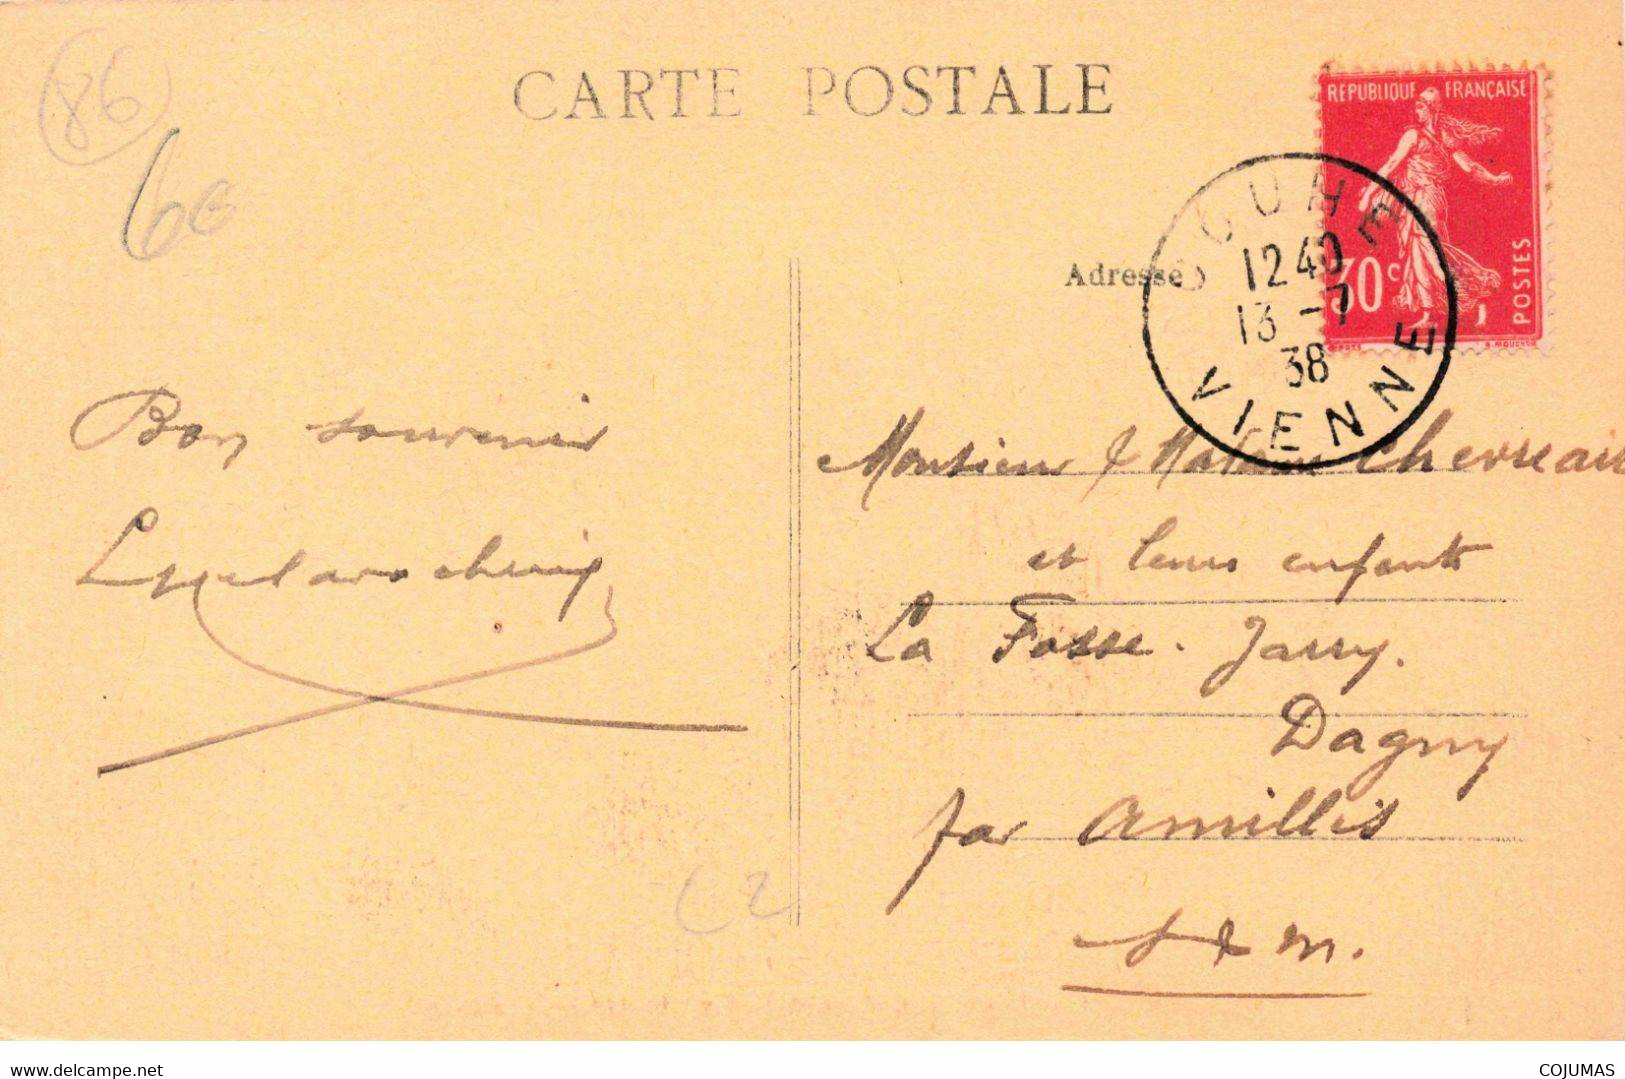 86
6€
CARTE POSTALE
RÉPUBLIQUE FRANÇAISE
30c
POSTES
Adresse
COUHE
12 40
13 -7
38
VIENNE
Bon souvenir
Monsieur & Madame Chevreau
et leurs enfants
La Fosse. Jarry.
Dagny
par Amillis
S & M.
www.delcampe.net
COJUMAS